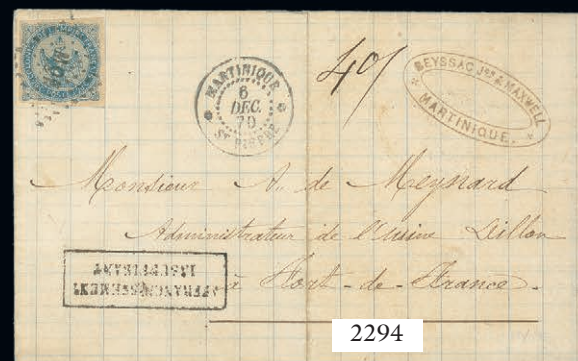 MARTINIQUE
6
DEC.
79
ST PIERRE
40
BEYSSAC JNE & MAXWELL
MARTINIQUE.
Monsieur A. de Meynard
Administrateur de l'Usine Dillon
à Fort-de-France.
AFFRANCHISSEMENT
INSUFFISANT
2294